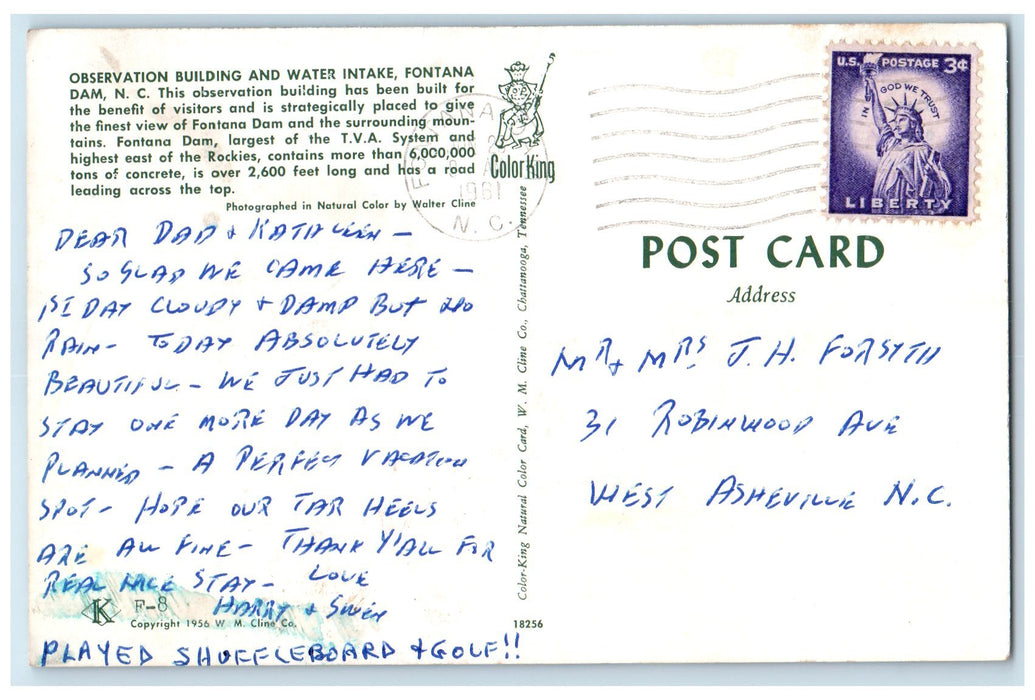 OBSERVATION BUILDING AND WATER INTAKE, FONTANA
DAM, N. C. This observation building has been built for
the benefit of visitors and is strategically placed to give
the finest view of Fontana Dam and the surrounding moun-
tains. Fontana Dam, largest of the T.V.A. System and
highest east of the Rockies, contains more than 6,000,000
tons of concrete, is over 2,600 feet long and has a road
leading across the top.
Photographed in Natural Color by Walter Cline
DEAR DAD + KATHLEEN –
SO GLAD WE CAME HERE –
1ST DAY CLOUDY + DAMP BUT NO
RAIN – TODAY ABSOLUTELY
BEAUTIFUL – WE JUST HAD TO
STAY ONE MORE DAY AS WE
PLANNED – A PERFECT VACATION
SPOT – HOPE OUR TAR HEELS
ARE ALL FINE – THANK Y'ALL FOR
REAL NICE STAY – LOVE
HARRY +
K F-8
Copyright 1956 W. M. Cline Co.
PLAYED SHUFFLEBOARD + GOLF!!
Color King
1961
N. C.
Color-King Natural Color Card, W. M. Cline Co., Chattanooga, Tennessee
18256
U.S. POSTAGE 3¢
IN GOD WE TRUST
LIBERTY
POST CARD
Address
MR + MRS J. H. FORSYTH
31 ROBINWOOD AVE
WEST ASHEVILLE N.C.